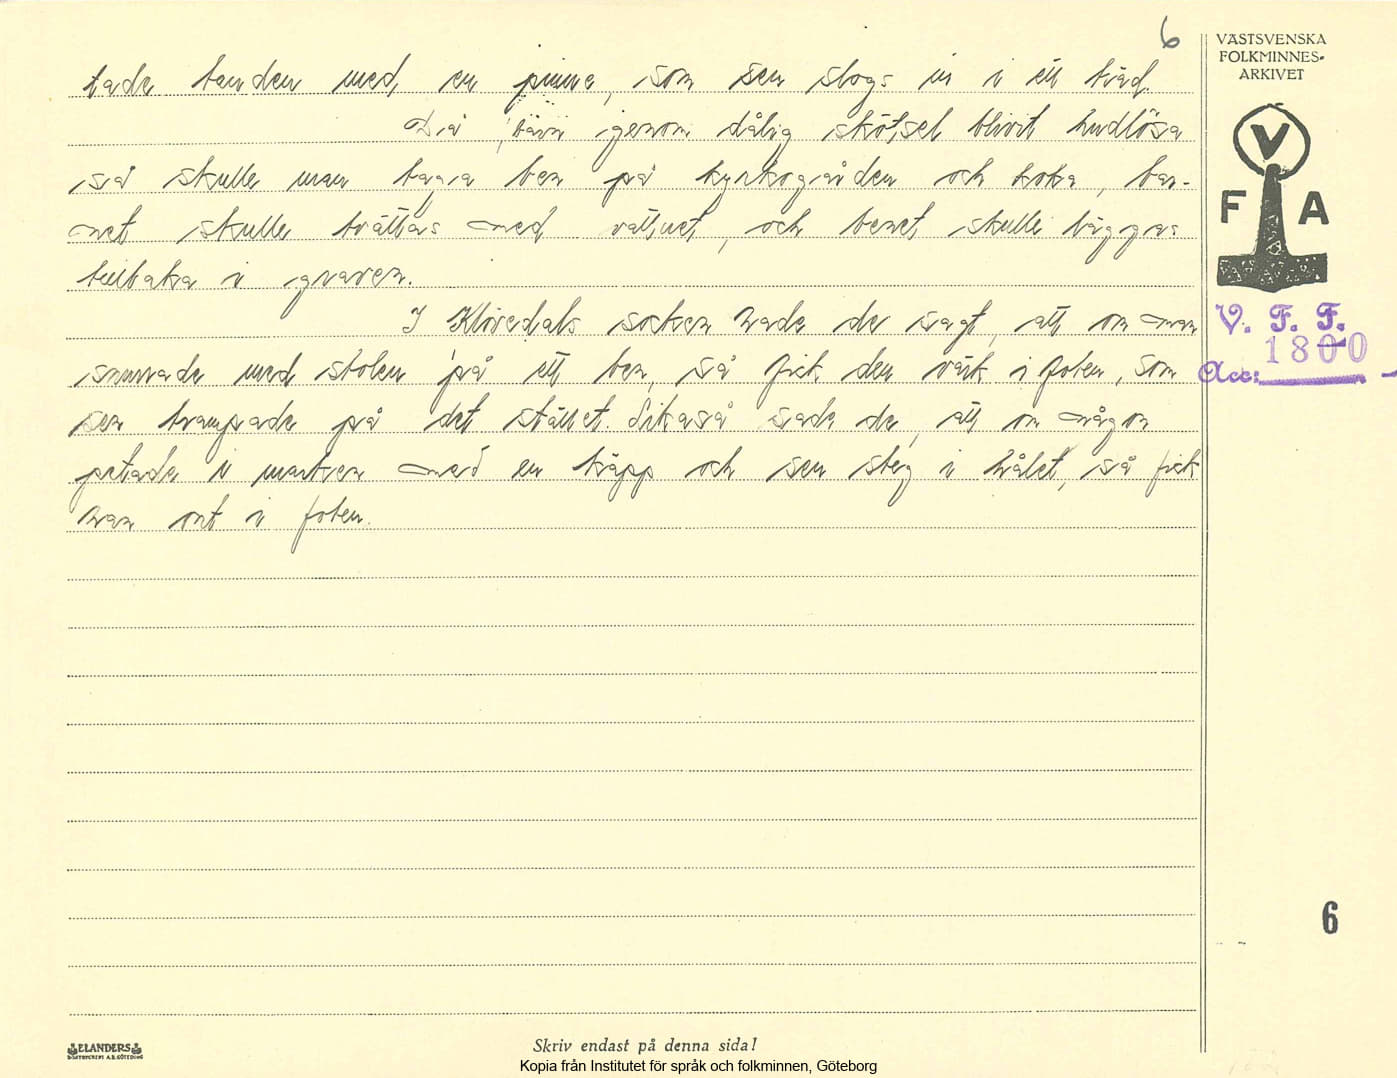 6
tade tanden med en pinne, som sen slogs in i ett träd.
Då barn genom dålig skötsel blivit hudlösa
så skulle man taga ben på kyrkogården och koka, bar-
net skulle tvättas med vattnet, och benet skulle läggas
tillbaka i graven.
I Klövedals socken hade de sagt, att om man
snurrade med stolen på ett ben, så fick den värk i foten, som
sen trampade på det stället. Likaså sade de, att om någon
petade i marken med en käpp och sen steg i hålet, så fick
han ont i foten.
VÄSTSVENSKA
FOLKMINNES-
ARKIVET
V
F A
V. F. F.
1800
Acc:
6
ELANDERS
Skriv endast på denna sida!
Kopia från Institutet för språk och folkminnen, Göteborg